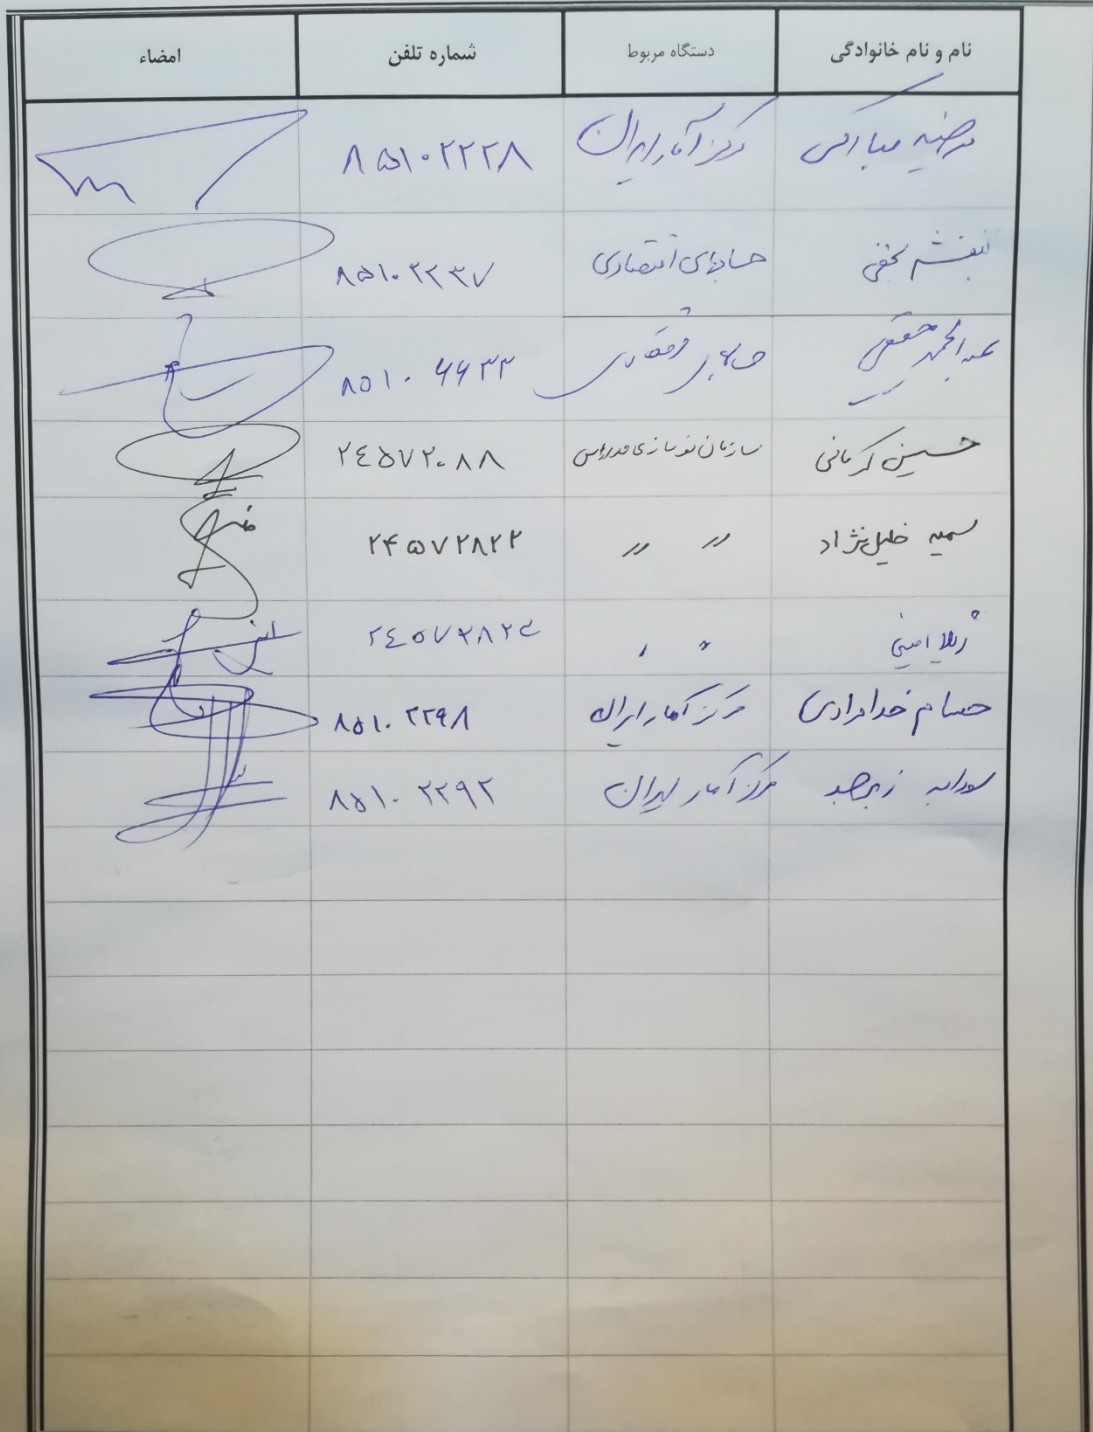 نام و نام خانوادگی دستگاه مربوط شماره تلفن امضاء
مرضیه مبارکی مرکز آمار ایران ۸۵۱۰۲۲۲۸
بنفشه نجفی حسابهای اقتصادی ۸۵۱۰۲۲۳۷
عبدالحمید حقیقی اقتصادی ۸۵۱۰۶۶۳۳
حسین کرمانی سازمان نوسازی مدارس ۲٤۵۷۲۰۸۸
سمیه خلیل نژاد 〃 〃 ۲۴۵۷۲۸۲۲
ژیلا امینی 〃 〃
حسام خدامرادی مرکز آمار ایران ۸۵۱۰۲۲۹۸
سودابه مرکز آمار ایران ۸۵۱۰۲۲۹۲